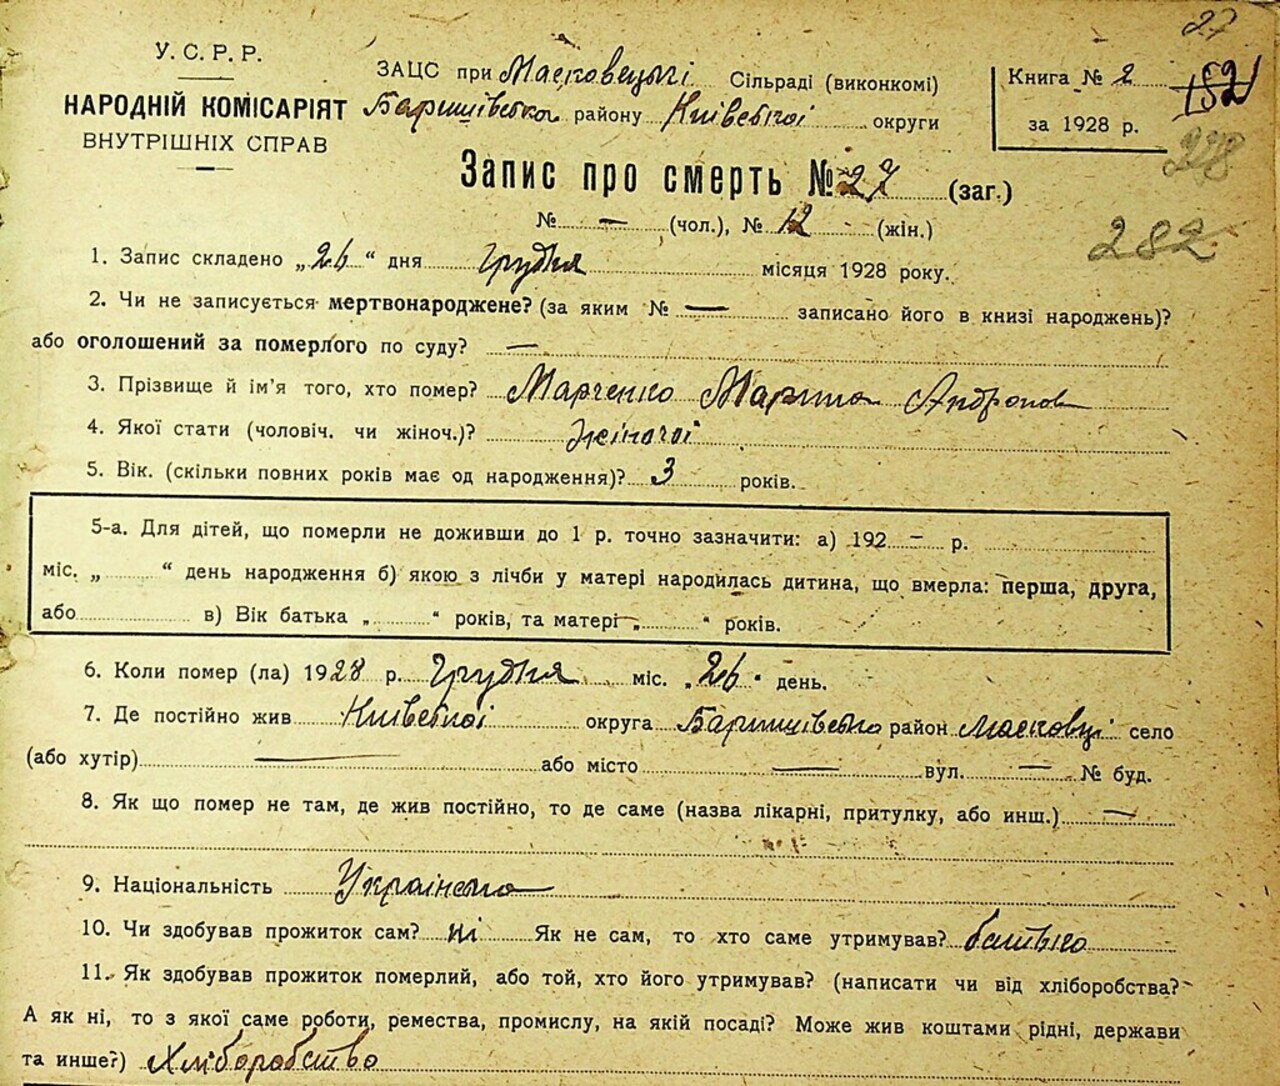 27
У. С. Р. Р.
НАРОДНІЙ КОМІСАРІЯТ
ВНУТРІШНІХ СПРАВ
ЗАЦС при Масковецькі Сільраді (виконкомі)
Баришівська району Київської округи
Книга № 2
за 1928 р.
152
228
282
Запис про смерть № 27 (заг.)
№ — (чол.), № 12 (жін.)
1. Запис складено „26“ дня грудня місяця 1928 року.
2. Чи не записується мертвонароджене? (за яким № — записано його в книзі народжень)?
або оголошений за померлого по суду? —
3. Прізвище й ім'я того, хто помер? Марченко Андронов
4. Якої стати (чоловіч. чи жіноч.)? жіночої
5. Вік. (скільки повних років має од народження)? 3 років.
5-а. Для дітей, що померли не доживши до 1 р. точно зазначити: а) 192 — р.
міс. „ “ день народження б) якою з лічби у матері народилась дитина, що вмерла: перша, друга,
або в) Вік батька „ “ років, та матері „ “ років.
6. Коли помер (ла) 1928 р. грудня міс. „26“ день.
7. Де постійно жив Київської округа Баришівська район Масковці село
(або хутір) — або місто — вул. — № буд.
8. Як що помер не там, де жив постійно, то де саме (назва лікарні, притулку, або инш.) —
9. Національність Українська
10. Чи здобував прожиток сам? ні Як не сам, то хто саме утримував? батько
11. Як здобував прожиток померлий, або той, хто його утримував? (написати чи від хліборобства?
А як ні, то з якої саме роботи, ремества, промислу, на якій посаді? Може жив коштами рідні, держави
та инше?) Хліборобство